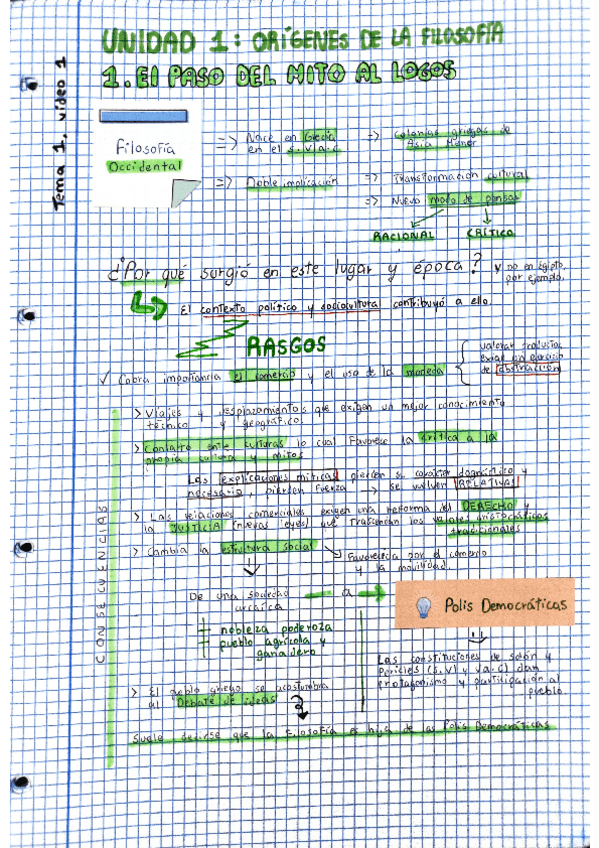 UNIDAD 1: ORÍGENES DE LA FILOSOFÍA
1. El PASO DEL MITO AL LOGOS
Tema 1, vídeo 1
Filosofía
Occidental
=> Nace en Grecia
en el s. V a.C.
=> Colonias griegas de
Asia Menor
=> Doble implicación
=> Transformación cultural
=> Nuevo modo de pensar
RACIONAL
CRÍTICO
¿Por qué surgió en este lugar y época?
y no en Egipto,
por ejemplo.
El contexto político y sociocultural contribuyó a ello.
RASGOS
✓ Cobra importancia el comercio y el uso de la moneda
valorar productos
exige un ejercicio
de abstracción
CONSECUENCIAS
> Viajes y desplazamientos que exigen un mejor conocimiento
técnico y geográfico.
> Contacto entre culturas lo cual favorece la crítica a la
propia cultura y mitos
Las explicaciones míticas pierden su carácter dogmático y
necesario, pierden fuerza → se vuelven RELATIVAS
> Las relaciones comerciales exigen una reforma del DERECHO y
la JUSTICIA (nuevas leyes) que trasciendan los valores aristocráticos
tradicionales
> Cambia la estructura social
Favorecida por el comercio
y la movilidad.
De una sociedad
arcaica
a
Polis Democráticas
nobleza poderoza
pueblo agrícola y
ganadero
Las constituciones de Solón y
Pericles (s. VI y V a.C) dan
protagonismo y participación al
pueblo.
> El pueblo griego se acostumbra
al Debate de ideas
Suele decirse que la Filosofía es hija de las Polis Democráticas